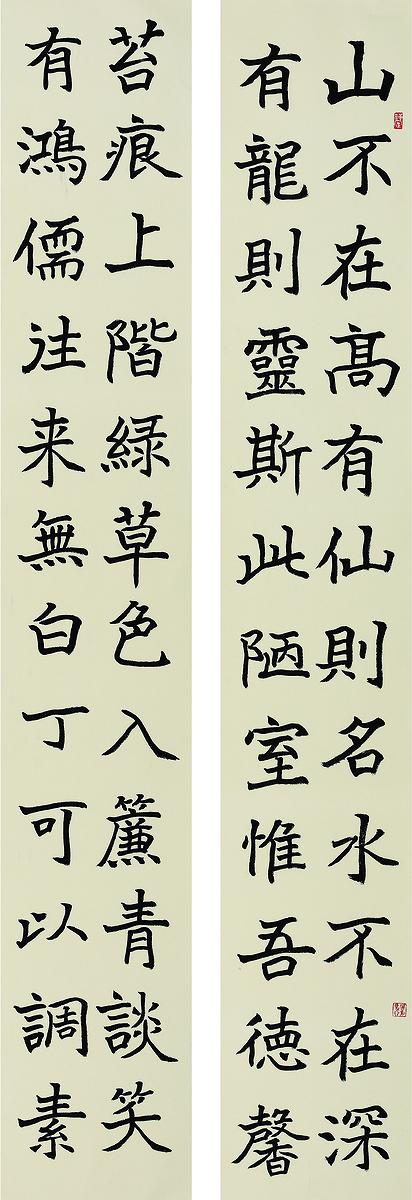 山不在高有仙則名水不在深
有龍則靈斯此陋室惟吾德馨
苔痕上階綠草色入簾青談笑
有鴻儒往来無白丁可以調素